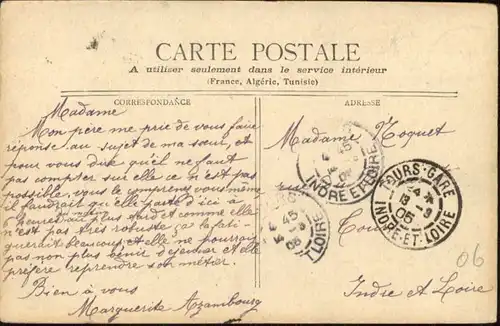 CARTE POSTALE
A utiliser seulement dans le service intérieur
(France, Algérie, Tunisie)
CORRESPONDANCE
ADRESSE
Madame
Mon père me prie de vous faire
réponse au sujet de ma sœur, et
pour vous dire qu'il ne faut
pas compter sur elle ce n'est pas
possible, vous le comprenez vous même
il faudrait qu'elle parte d'ici à
heures plus tard et comme elle
n'est pas très robuste ça la fati-
guerait beaucoup, et elle ne pourrait
pas non plus bénir déjeuner et elle
préfère reprendre son métier.
Bien à vous
Marguerite Azambourg
Madame Hoquet
Indre et Loire
INDRE ET LOIRE
45
06
LOIRE
TOURS-GARE
13 -9
06
INDRE-ET-LOIRE
06